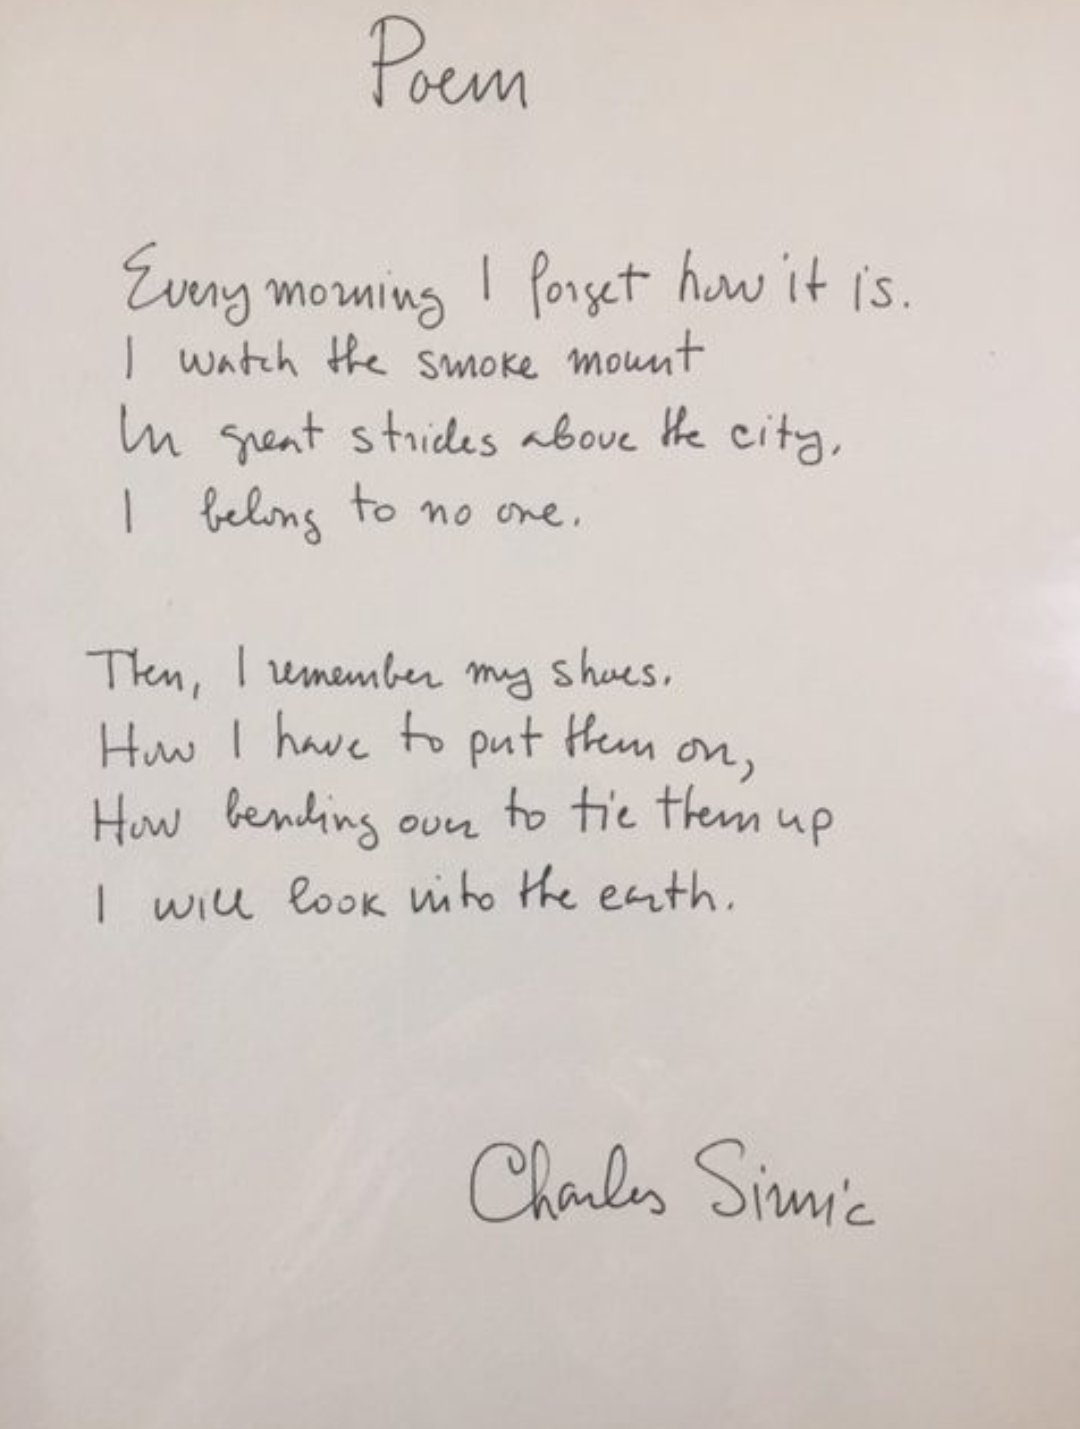 Poem
Every morning I forget how it is.
I watch the smoke mount
In great strides above the city.
I belong to no one.
Then, I remember my shoes.
How I have to put them on,
How bending over to tie them up
I will look into the earth.
Charles Simic